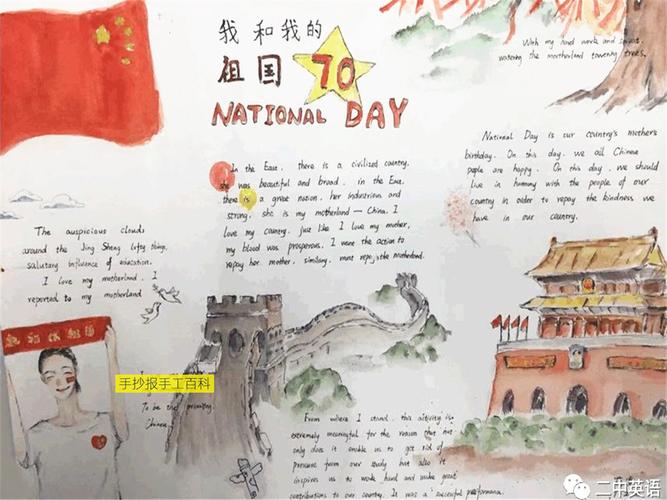 我和我的
祖国 70
NATIONAL DAY
With my hard work and
watering the motherland towering trees.
In the East, there is a civilized country.
she was beautiful and broad. in the East,
there is a great nation, her industrious and
strong. she is my motherland — China. I
love my country. just like I love my mother,
my blood was prosperous. I want the action to
repay her. mother, similary, must repay the motherland.
National Day is our country's mother's
birthday. On this day, we all Chinese
people are happy. On this day, we should
live in harmony with the people of our
country in order to repay the kindness we
have in our country.
The auspicious clouds
around the Jing Sheng lofty things,
salutary influence of education.
I love my motherland. I
reported to my motherland
我和我的祖国
手抄报手工百科
To be the
China
From where I stand, this activity is
extremely meaningful for the reason that not
only does it enable us to get rid of
pressure from our study but also it
inspires us to work hard and make great
contributions to our country. It was a successful performance.
二中英语